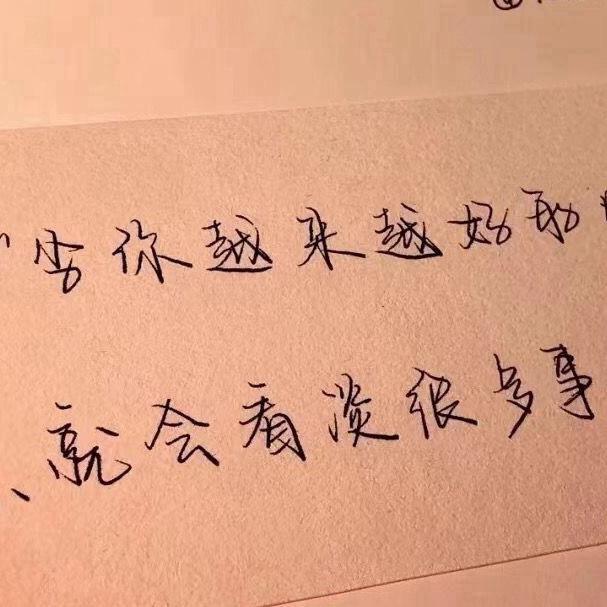 当你越来越好那
、就会看淡很多事